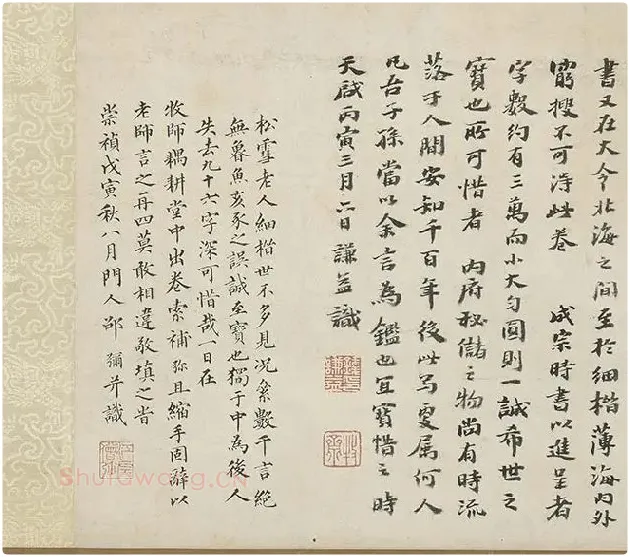 書又在大令北海之間至於細楷薄海內外
窮搜不可得此卷 成宗時書以進呈者
字數約有三萬而小大勻圓則一誠希世之
寶也所可惜者 內府秘儲之物尚有時流
落于人間安知千百年後此更屬何人
凡吾子孫當以余言為鑑也宜寶惜之時
天啟丙寅三月六日 謙益識
松雪老人細楷世不多見況絫數千言絕
無魯魚亥豕之誤誠至寶也獨于中為後人
失去九十六字深可惜哉一日在
牧師耦耕堂中出卷索補弥且縮手固辭以
老師言之再四莫敢相違敬填之旹
崇禎戊寅秋八月門人邵 彌并識
Shufawang.CN